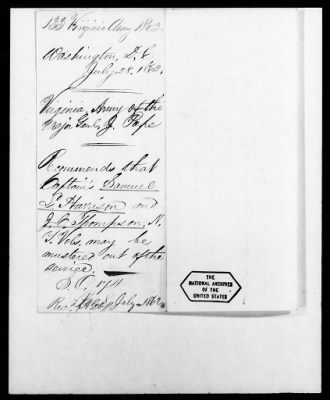 133 Virginia Army 1862.
Washington, D. C
July 28. 1862.
Virginia, Army of the
Major Genl. J. Pope
Recommends that
Captains Samuel
L. Harrison and
J. C. Thompson, N.
Y. Vols, may be
mustered out of the
service.
July 1862
THE
NATIONAL ARCHIVES
OF THE
UNITED STATES